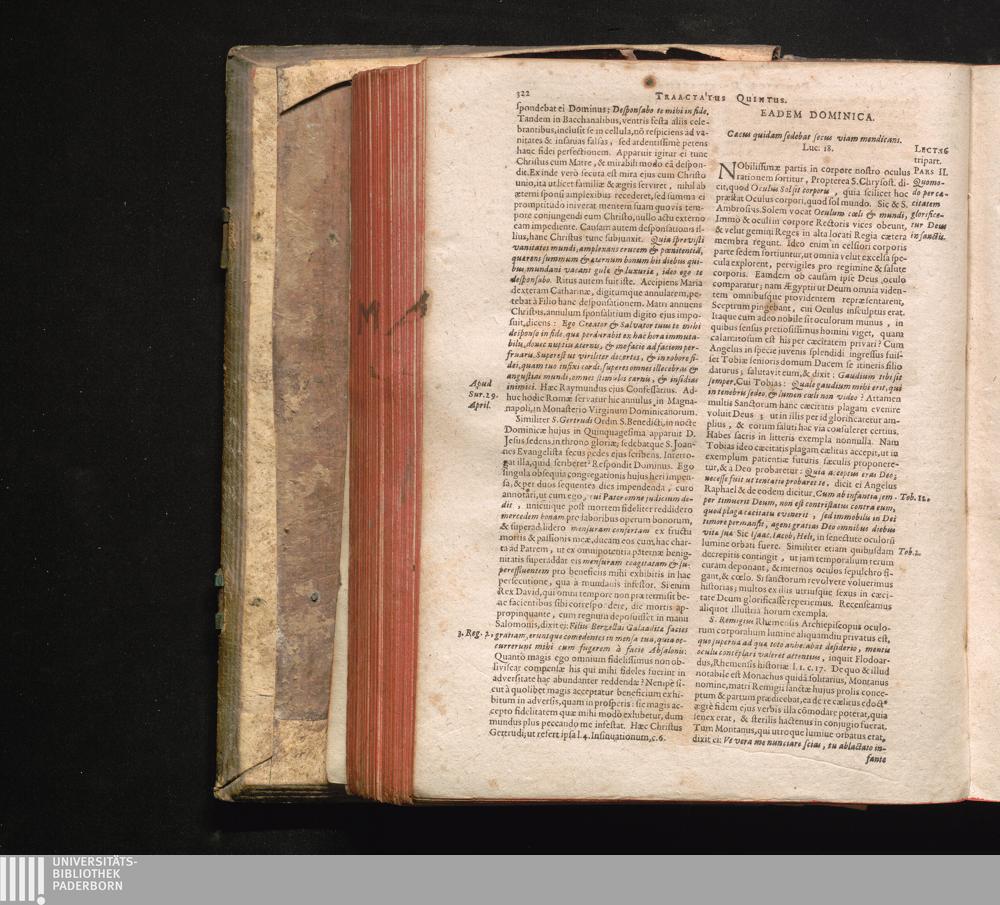 322
TRAACTATUS QUINTUS.
spondebat ei Dominus: Desponsabo te mihi in fide.
Tandem in Bacchanalibus, ventris festa aliis cele-
brantibus, inclusit se in cellula, nō respiciens ad va-
nitates & insanias falsas, sed ardentissimè petens
hanc fidei perfectionem. Apparuit igitur ei tunc
Christus cum Matre, & mirabili modo eā despon-
dit. Ex inde verò secuta est mira ejus cum Christo
unio, ita ut licet familiæ & ægris serviret, nihil ab
æterni sponsi amplexibus recederet, sed summa ei
promptitudo iniverat mentem suam quovis tem-
pore conjungendi eum Christo, nullo actu externo
eam impediente. Causam autem desponsationis il-
lius, hanc Christus tunc subjunxit. Quia sprevisti
vanitates mundi, amplexans crucem & pœnitentiā,
quærens summum & æternum bonum his diebus qui-
bus mundani vacant gulæ & luxuriæ, ideo ego te
desponsabo. Ritus autem fuit iste. Accipiens Maria
dexteram Catharinæ, digitumque annularem, pe-
tebat à Filio hanc desponsationem. Matri annuens
Christus, annulum sponsalitium digito ejus impo-
suit, dicens: Ego Creator & Salvator tuus te mihi
desponso in fide, quæ perdurabit ex hac hora immuta-
bilis, donec nuptiis æternis, & me facie ad faciem per-
fruaris. Superest ut viriliter decertes, & in robore fi-
dei, quam tuo infixi cordi, superes omnes illecebras &
angustias mundi, omnes stimulos carnis, & insidias
inimici. Hæc Raymundus ejus Confessarius. Ad-
huc hodie Romæ servatur hic annulus in Magna-
napoli, in Monasterio Virginum Dominicanorum.
Apud
Sur. 29.
April.
Similiter S. Gertrudi Ordin. S. Benedicti, in nocte
Dominicæ hujus in Quinquagesima apparuit D.
Jesus sedens in throno gloriæ; sedebatque S. Joan-
nes Evangelista secus pedes ejus scribens. Interro-
gat illa, quid scriberet? Respondit Dominus. Ego
singula obsequia congregationis hujus heri impen-
sa, & per duos sequentes dies impendenda, curo
annotari, ut cum ego, cui Pater omne judicium de-
dit, unicuique post mortem fideliter reddidero
mercedem bonam pro laboribus operum bonorum,
& superaddidero mensuram confertam ex fructu
mortis & passionis meæ, ducam eos cum hac char-
ta ad Patrem, ut ex omnipotentia paternæ benig-
nitatis superaddat eis mensuram coagitatam & su-
pereffluentem pro beneficiis mihi exhibitis in hac
persecutione, qua à mundanis infestor. Si enim
Rex David, qui omni tempore non prætermisit be-
ne facientibus sibi correspondere, die mortis ap-
propinquante, cum regnum deposuisset in manu
Salomonis, dixit ei: Filiis Berzellai Galaadita facies
3. Reg. 2. gratiam, eruntque comedentes in mensa tua, quia oc-
currerunt mihi cum fugerem à facie Absalonis:
Quantò magis ego omnium fidelissimus non ob-
liviscar compensæ his qui mihi fideles fuerint in
adversitate hac abundanter reddendæ? Nempè si-
cut à quolibet magis acceptatur beneficium exhi-
bitum in adversis, quam in prosperis: sic magis ac-
cepto fidelitatem quæ mihi modò exhibetur, dum
mundus plus peccando me infestat. Hæc Christus
Gertrudi; ut refert ipsa l. 4. Insinuationum, c. 6.
EADEM DOMINICA.
Cæcus quidam sedebat secus viam mendicans.
Luc. 18.
LECTAS
tripart.
PARS II.
Quomo-
do per cæ-
citatem
glorifice-
tur Deus
in sanctis.
NObilissimæ partis in corpore nostro oculus
rationem sortitur, Propterea S. Chrysost. di-
cit, quod Oculus Sol sit corporis, quia scilicet hoc
præstat Oculus corpori, quod sol mundo. Sic & S.
Ambrosius. Solem vocat Oculum cœli & mundi,
Immò & oculi in corpore Rectoris vices obeunt,
& velut gemini Reges in alta locati Regia cætera
membra regunt. Ideo enim in celsiori corporis
parte sedem sortiuntur, ut omnia velut excelsa spe-
cula explorent, pervigiles pro regimine & salute
corporis. Eamdem ob causam ipse Deus oculo
comparatur; nam Ægyptii ut Deum omnia viden-
tem omnibusque providentem repræsentarent,
Sceptrum pingebant, cui Oculus insculptus erat.
Itaque cum adeo nobile sit oculorum munus, in
quibus sensus pretiosissimus homini viget, quam
calamitosum est his per cæcitatem privari? Cum
Angelus in specie juvenis splendidi ingressus fuis-
set Tobiæ senioris domum Ducem se itineris filio
daturus; salutavit eum, & dixit: Gaudium tibi sit
semper. Cui Tobias: Quale gaudium mihi erit, qui
in tenebris sedeo, & lumen cœli non video? Attamen
multis Sanctorum hanc cæcitatis plagam evenire
voluit Deus; ut in illis per id glorificaretur am-
plius, & eorum saluti hac via consuleret certius.
Habes sacris in litteris exempla nonnulla. Nam
Tobias ideo cæcitatis plagam cælitus accepit, ut in
exemplum patientiæ futuris sæculis proponere-
tur, & à Deo probaretur: Quia acceptus eras Deo;
necesse fuit ut tentatio probaret te, dicit ei Angelus
Raphael & de eodem dicitur. Cum ab infantia sem-
Tob. 12.
per timuerit Deum, non est contristatus contra eum,
quod plaga cæcitatis evinerit, sed immobilis in Dei
timore permansit, agens gratias Deo omnibus diebus
vitæ suæ. Sic Isaac, Iacob, Heli, in senectute oculorū
lumine orbati fuere. Similiter etiam quibusdam
Tob. 2.
decrepitis contingit, ut jam temporalium rerum
curam deponant, & internos oculos sepulchro fi-
gant, & cœlo. Si sanctorum revolvere voluerimus
historias; multos ex illis utriusque sexus in cæci-
tate Deum glorificasse reperiemus. Recenseamus
aliquot illustria horum exempla.
S. Remigius Rhemensis Archiepiscopus oculo-
rum corporalium lumine aliquamdiu privatus est,
quo superna ad quæ toto anhelabat desiderio, mentis
oculis contēplari valeret attentius, inquit Flodoar-
dus, Rhemensis historiæ l. 1. c. 17. De quo & illud
notabile est Monachus quidā solitarius, Montanus
nomine, matri Remigii sanctæ hujus prolis conce-
ptum & partum prædicebat, ea de re cælitus edoct⁹
ægrè fidem ejus verbis illa cōmodare poterat, quia
senex erat, & sterilis hactenus in conjugio fuerat.
Tum Montanus, qui utroque lumine orbatus erat,
dixit ei: Ut vera me nunciare scias, tu ablactato in-
fante
UNIVERSITÄTS-
BIBLIOTHEK
PADERBORN